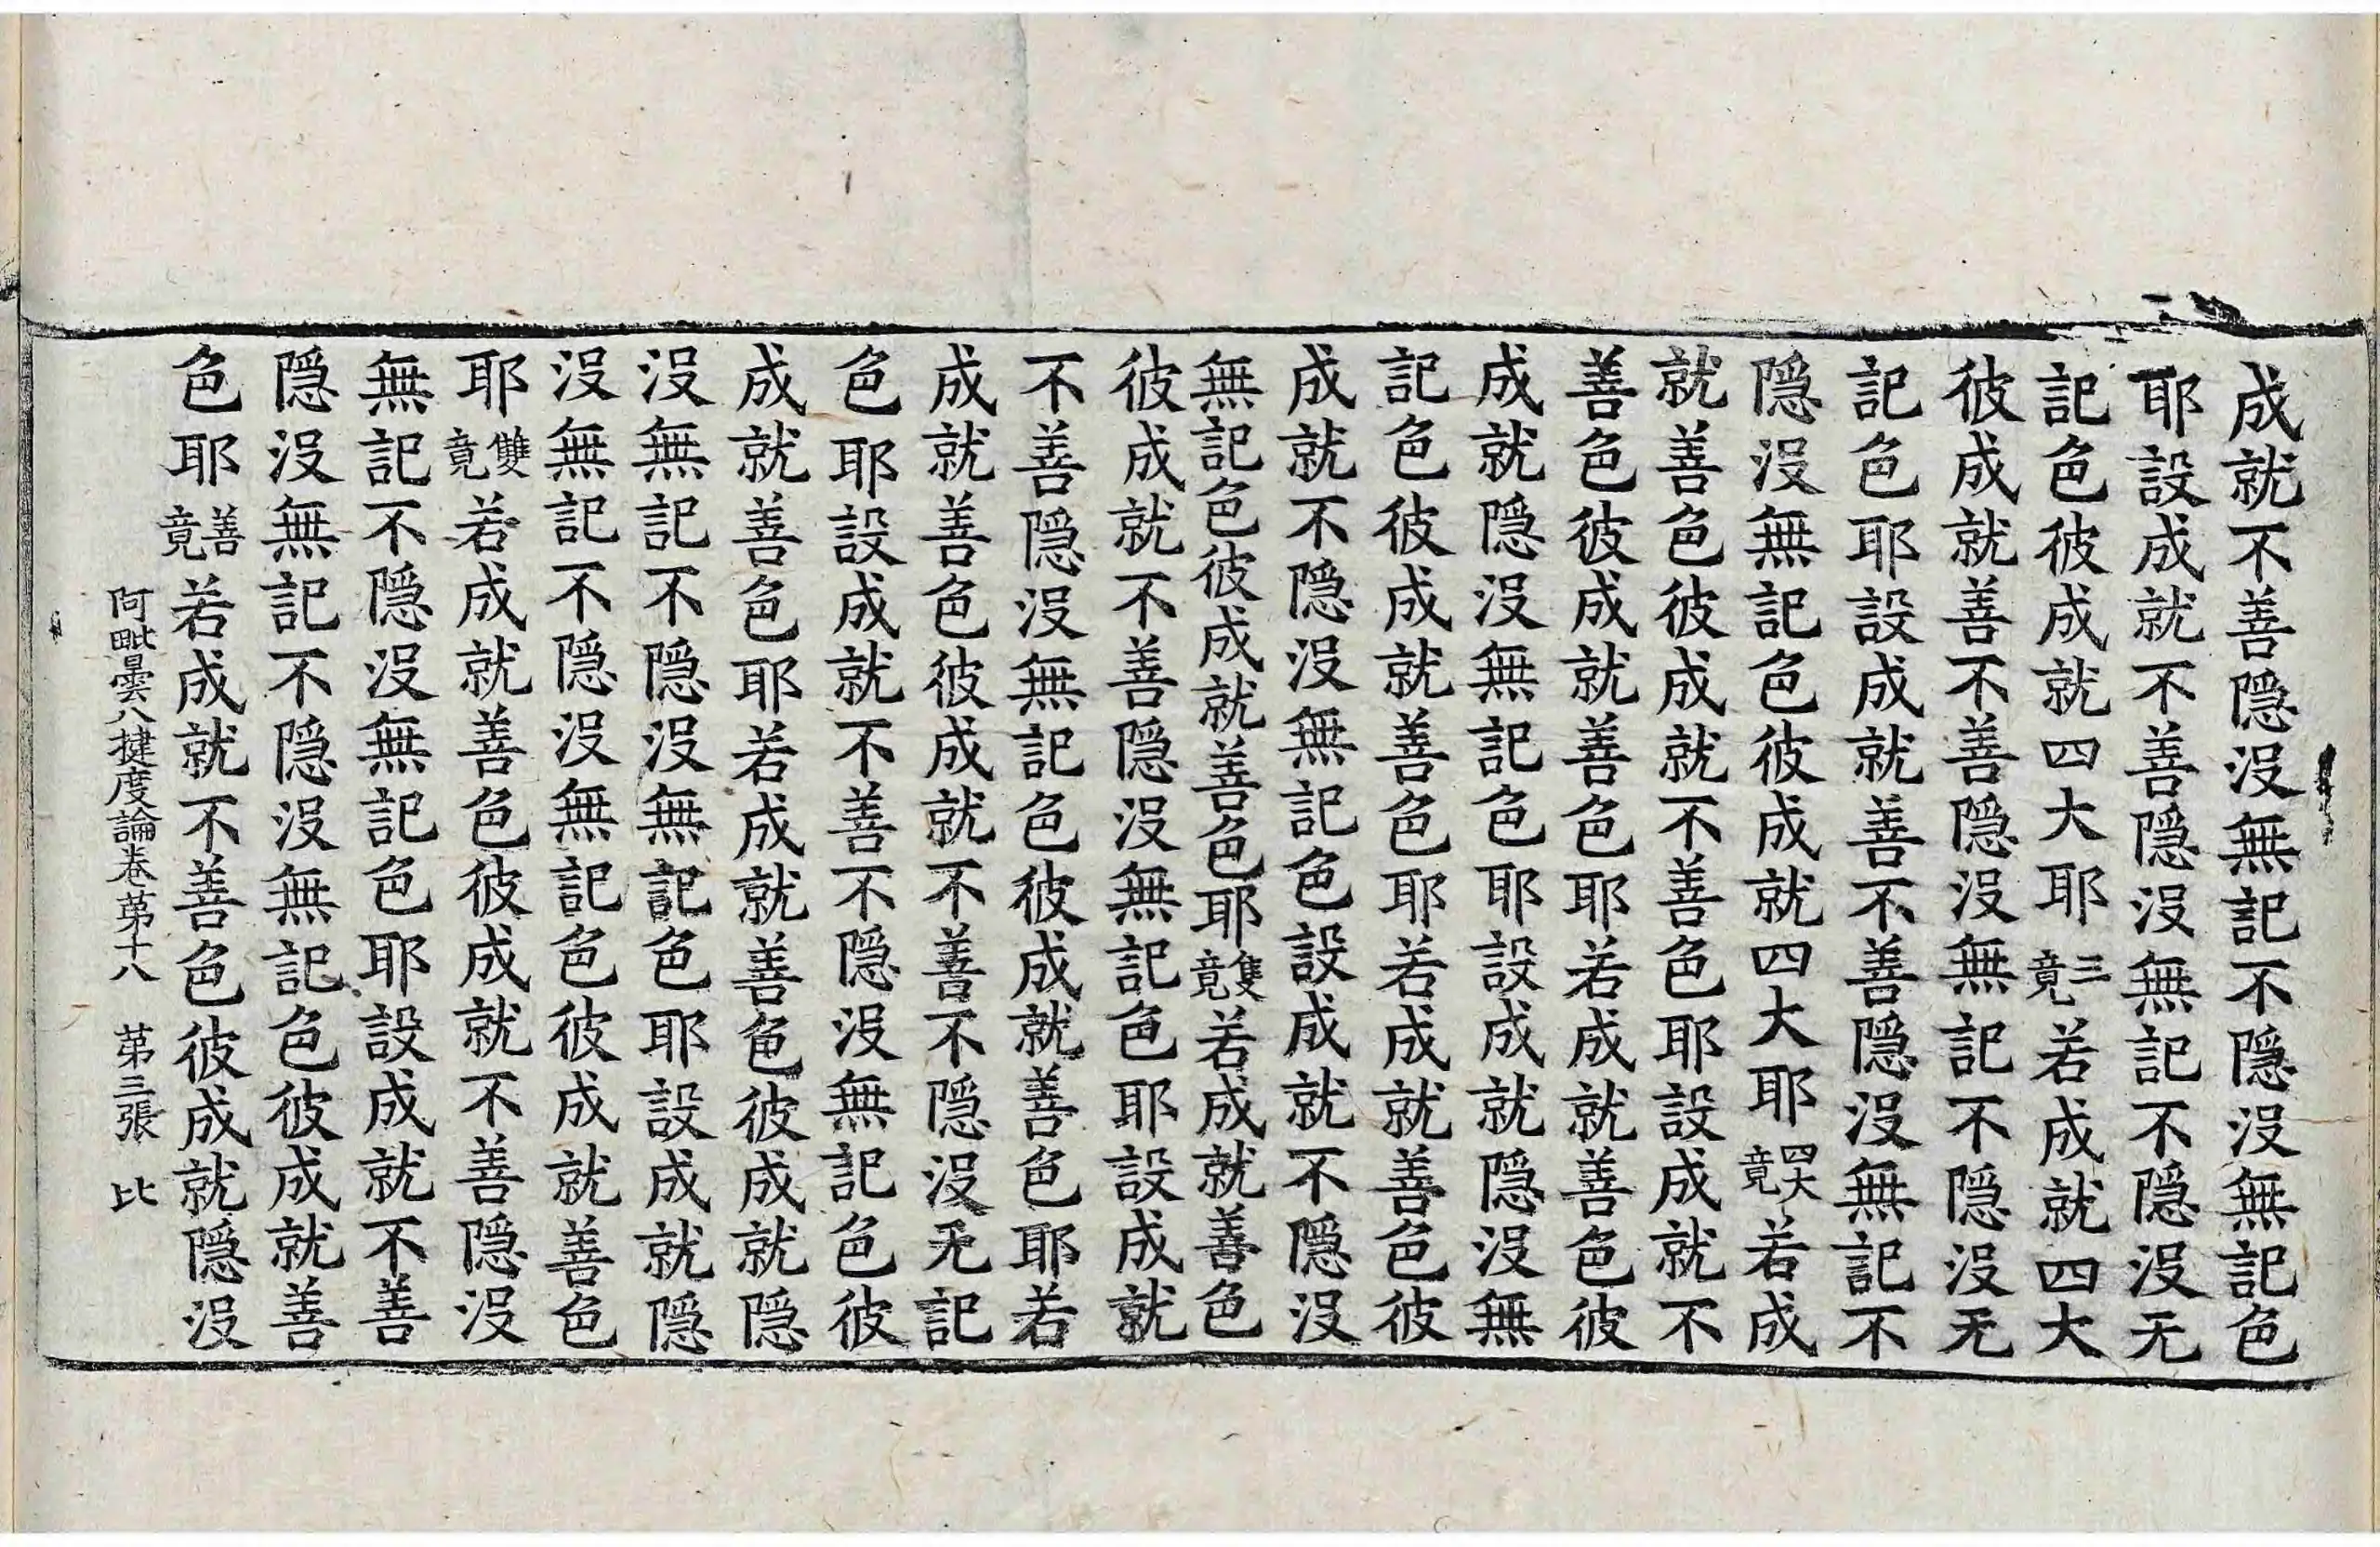 成就不善隱沒無記不隱沒無記色
耶設成就不善隱沒無記不隱沒无
記色彼成就四大耶三竟若成就四大
彼成就善不善隱沒無記不隱沒无
記色耶設成就善不善隱沒無記不
隱沒無記色彼成就四大耶四大竟若成
就善色彼成就不善色耶設成就不
善色彼成就善色耶若成就善色彼
成就隱沒無記色耶設成就隱沒無
記色彼成就善色耶若成就善色彼
成就不隱沒無記色設成就不隱沒
無記色彼成就善色耶隻竟若成就善色
彼成就不善隱沒無記色耶設成就
不善隱沒無記色彼成就善色耶若
成就善色彼成就不善不隱沒无記
色耶設成就不善不隱沒無記色彼
成就善色耶若成就善色彼成就隱
沒無記不隱沒無記色耶設成就隱
沒無記不隱沒無記色彼成就善色
耶雙竟若成就善色彼成就不善隱沒
無記不隱沒無記色耶設成就不善
隱沒無記不隱沒無記色彼成就善
色耶善竟若成就不善色彼成就隱沒
阿毗曇八揵度論卷苐十八 苐三張 比